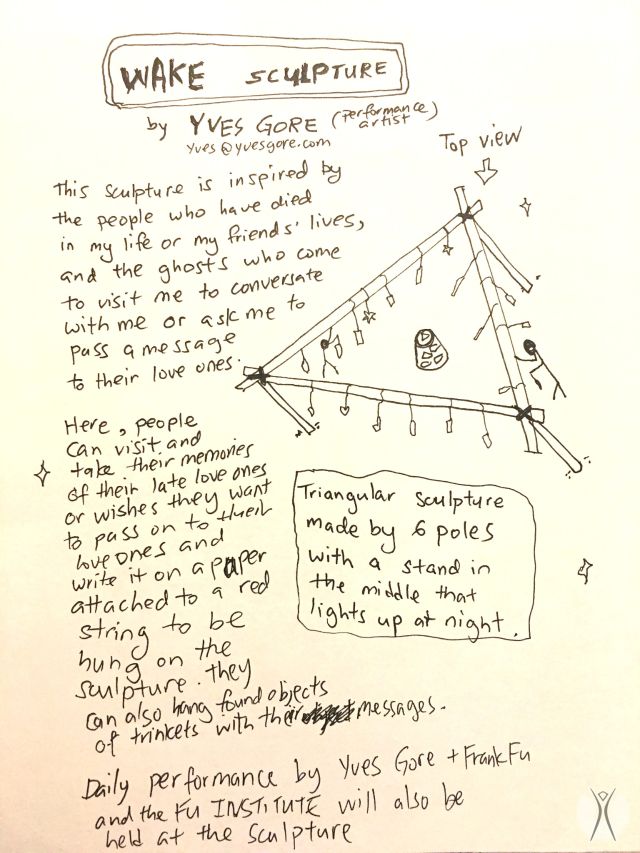 WAKE SCULPTURE
by YVES GORE (performance artist)
yves@yvesgore.com
Top view
This sculpture is inspired by
the people who have died
in my life or my friends' lives,
and the ghosts who come
to visit me to conversate
with me or ask me to
pass a message
to their love ones.
Here, people
can visit and
take their memories
of their late love ones
or wishes they want
to pass on to their
love ones and
write it on a paper
attached to a red
string to be
hung on the
sculpture. they
can also hang found objects
of trinkets with their messages.
Triangular sculpture
made by 6 poles
with a stand in
the middle that
lights up at night.
Daily performance by Yves Gore + Frank Fu
and the FU INSTITUTE will also be
held at the sculpture